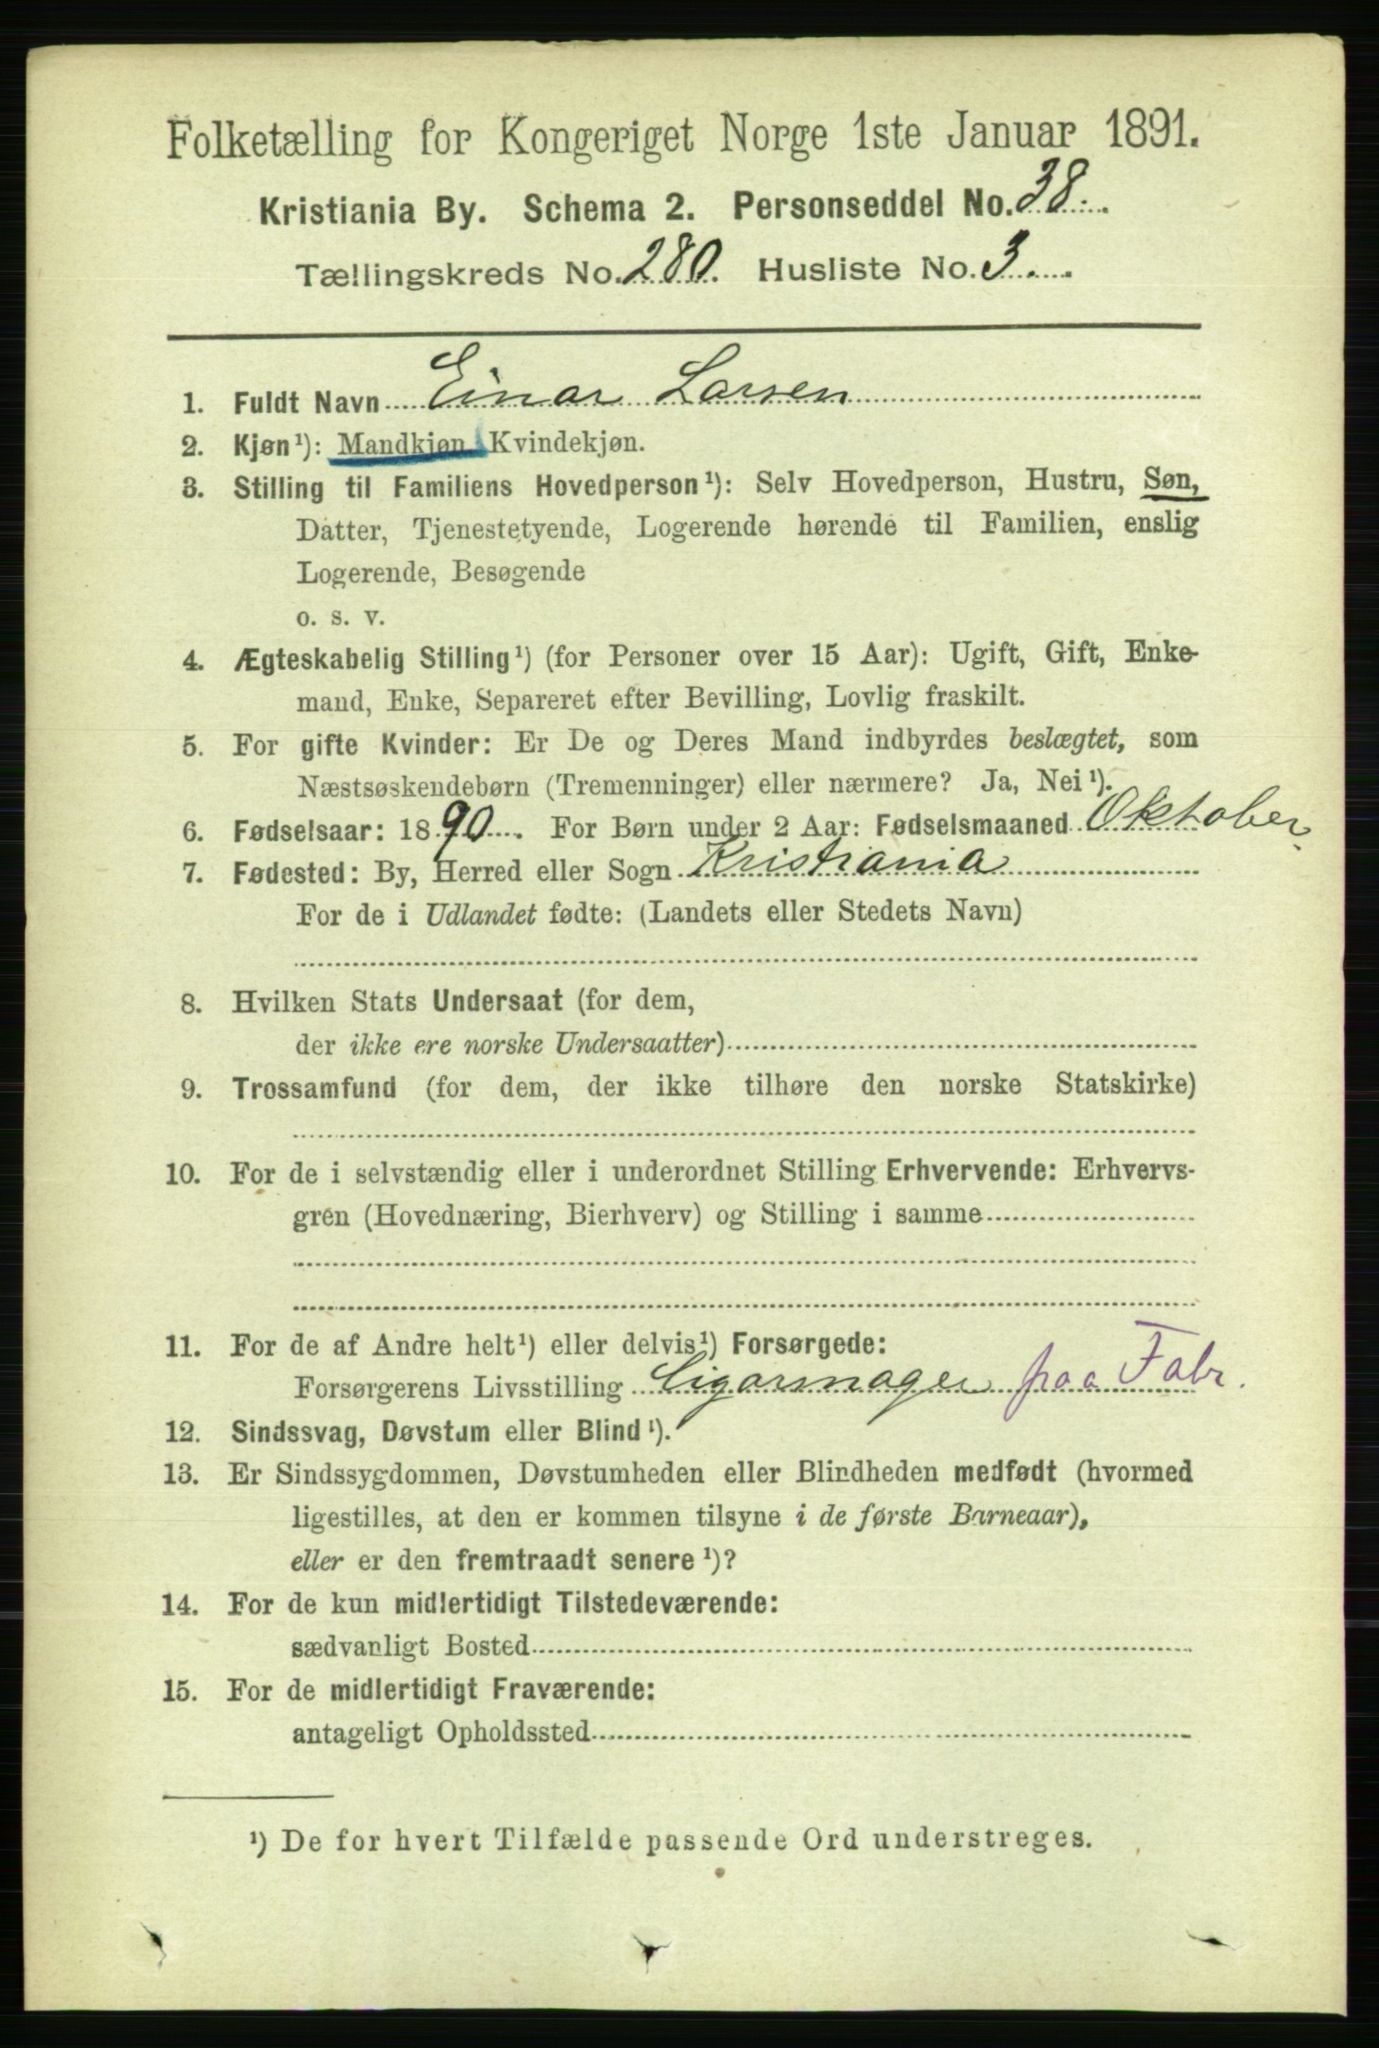 Folketælling for Kongeriget Norge 1ste Januar 1891.
Kristiania By. Schema 2. Personseddel No. 38.
Tællingskreds No. 280. Husliste No. 3.
1. Fuldt Navn Einar Larsen
2. Kjøn¹): Mandkjøn, Kvindekjøn.
3. Stilling til Familiens Hovedperson¹): Selv Hovedperson, Hustru, Søn,
Datter, Tjenestetyende, Logerende hørende til Familien, enslig
Logerende, Besøgende
o. s. v.
4. Ægteskabelig Stilling¹) (for Personer over 15 Aar): Ugift, Gift, Enke-
mand, Enke, Separeret efter Bevilling, Lovlig fraskilt.
5. For gifte Kvinder: Er De og Deres Mand indbyrdes beslægtet, som
Næstsøskendebørn (Tremenninger) eller nærmere? Ja, Nei¹).
6. Fødselsaar: 1890. For Børn under 2 Aar: Fødselsmaaned Oktober.
7. Fødested: By, Herred eller Sogn Kristiania
For de i Udlandet fødte: (Landets eller Stedets Navn)
8. Hvilken Stats Undersaat (for dem,
der ikke ere norske Undersaatter)
9. Trossamfund (for dem, der ikke tilhøre den norske Statskirke)
10. For de i selvstændig eller i underordnet Stilling Erhvervende: Erhvervs-
gren (Hovednæring, Bierhverv) og Stilling i samme
11. For de af Andre helt¹) eller delvis¹) Forsørgede:
Forsørgerens Livsstilling Cigarmager paa Fabr.
12. Sindssvag, Døvstum eller Blind¹).
13. Er Sindssygdommen, Døvstumheden eller Blindheden medfødt (hvormed
ligestilles, at den er kommen tilsyne i de første Barneaar),
eller er den fremtraadt senere¹)?
14. For de kun midlertidigt Tilstedeværende:
sædvanligt Bosted
15. For de midlertidigt Fraværende:
antageligt Opholdssted
¹) De for hvert Tilfælde passende Ord understreges.